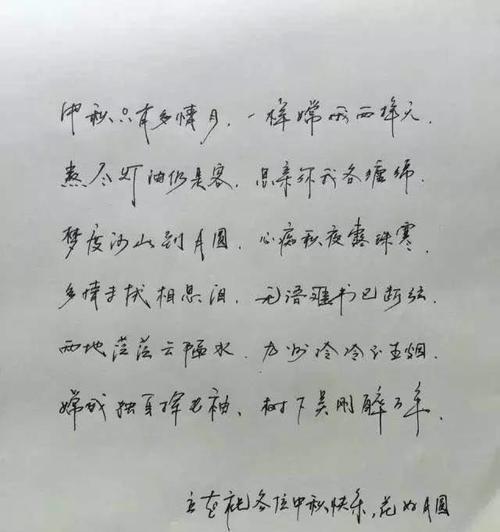 中秋只有多情月,一样嫦娥两样天.
熬尽灯油仍是客,思亲你我各缠绵.
梦度沙山别月圆,心痴秋夜露珠寒.
多情手拭相思泪,无语难书已断弦.
两地茫茫云隔水,九州冷冷不生烟.
嫦娥独自挥长袖,树下吴刚醉万年.
在祝各位中秋快乐,花好月圆